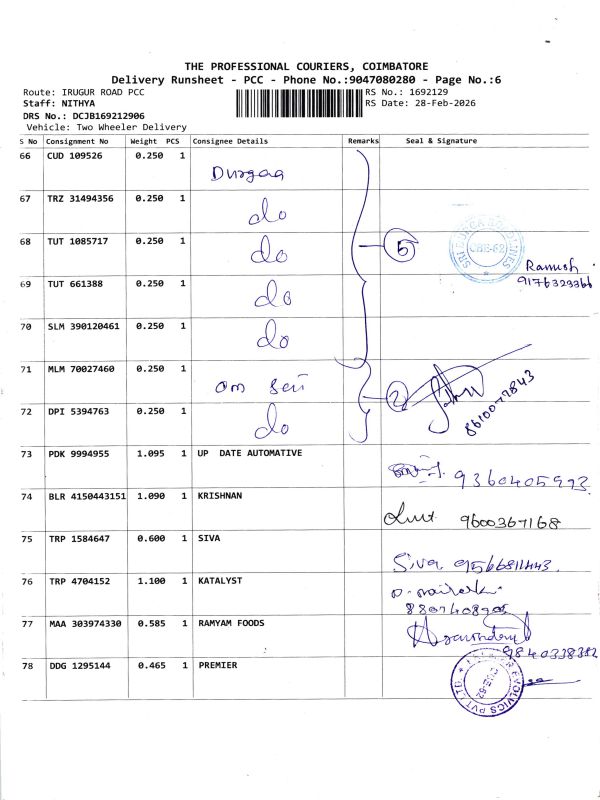 THE PROFESSIONAL COURIERS, COIMBATORE
Delivery Runsheet - PCC - Phone No.:9047080280 - Page No.:6
Route: IRUGUR ROAD PCC
RS No.: 1692129
Staff: NITHYA
RS Date: 28-Feb-2026
DRS No.: DCJB169212906
Vehicle: Two Wheeler Delivery
S No Consignment No Weight PCS Consignee Details Remarks Seal & Signature
66 CUD 109526 0.250 1 Durgaa
67 TRZ 31494356 0.250 1 do
68 TUT 1085717 0.250 1 do 5 CBE-62
Ramesh
69 TUT 661388 0.250 1 do
70 SLM 390120461 0.250 1 do
71 MLM 70027460 0.250 1 om 2
8610077843
72 DPI 5394763 0.250 1 do
73 PDK 9994955 1.095 1 UP DATE AUTOMATIVE
9360405993
74 BLR 4150443151 1.090 1 KRISHNAN
9600367168
75 TRP 1584647 0.600 1 SIVA
Siva 9566811443
76 TRP 4704152 1.100 1 KATALYST
77 MAA 303974330 0.585 1 RAMYAM FOODS
9840338382
78 DDG 1295144 0.465 1 PREMIER
EVOLVICS PVT LTD